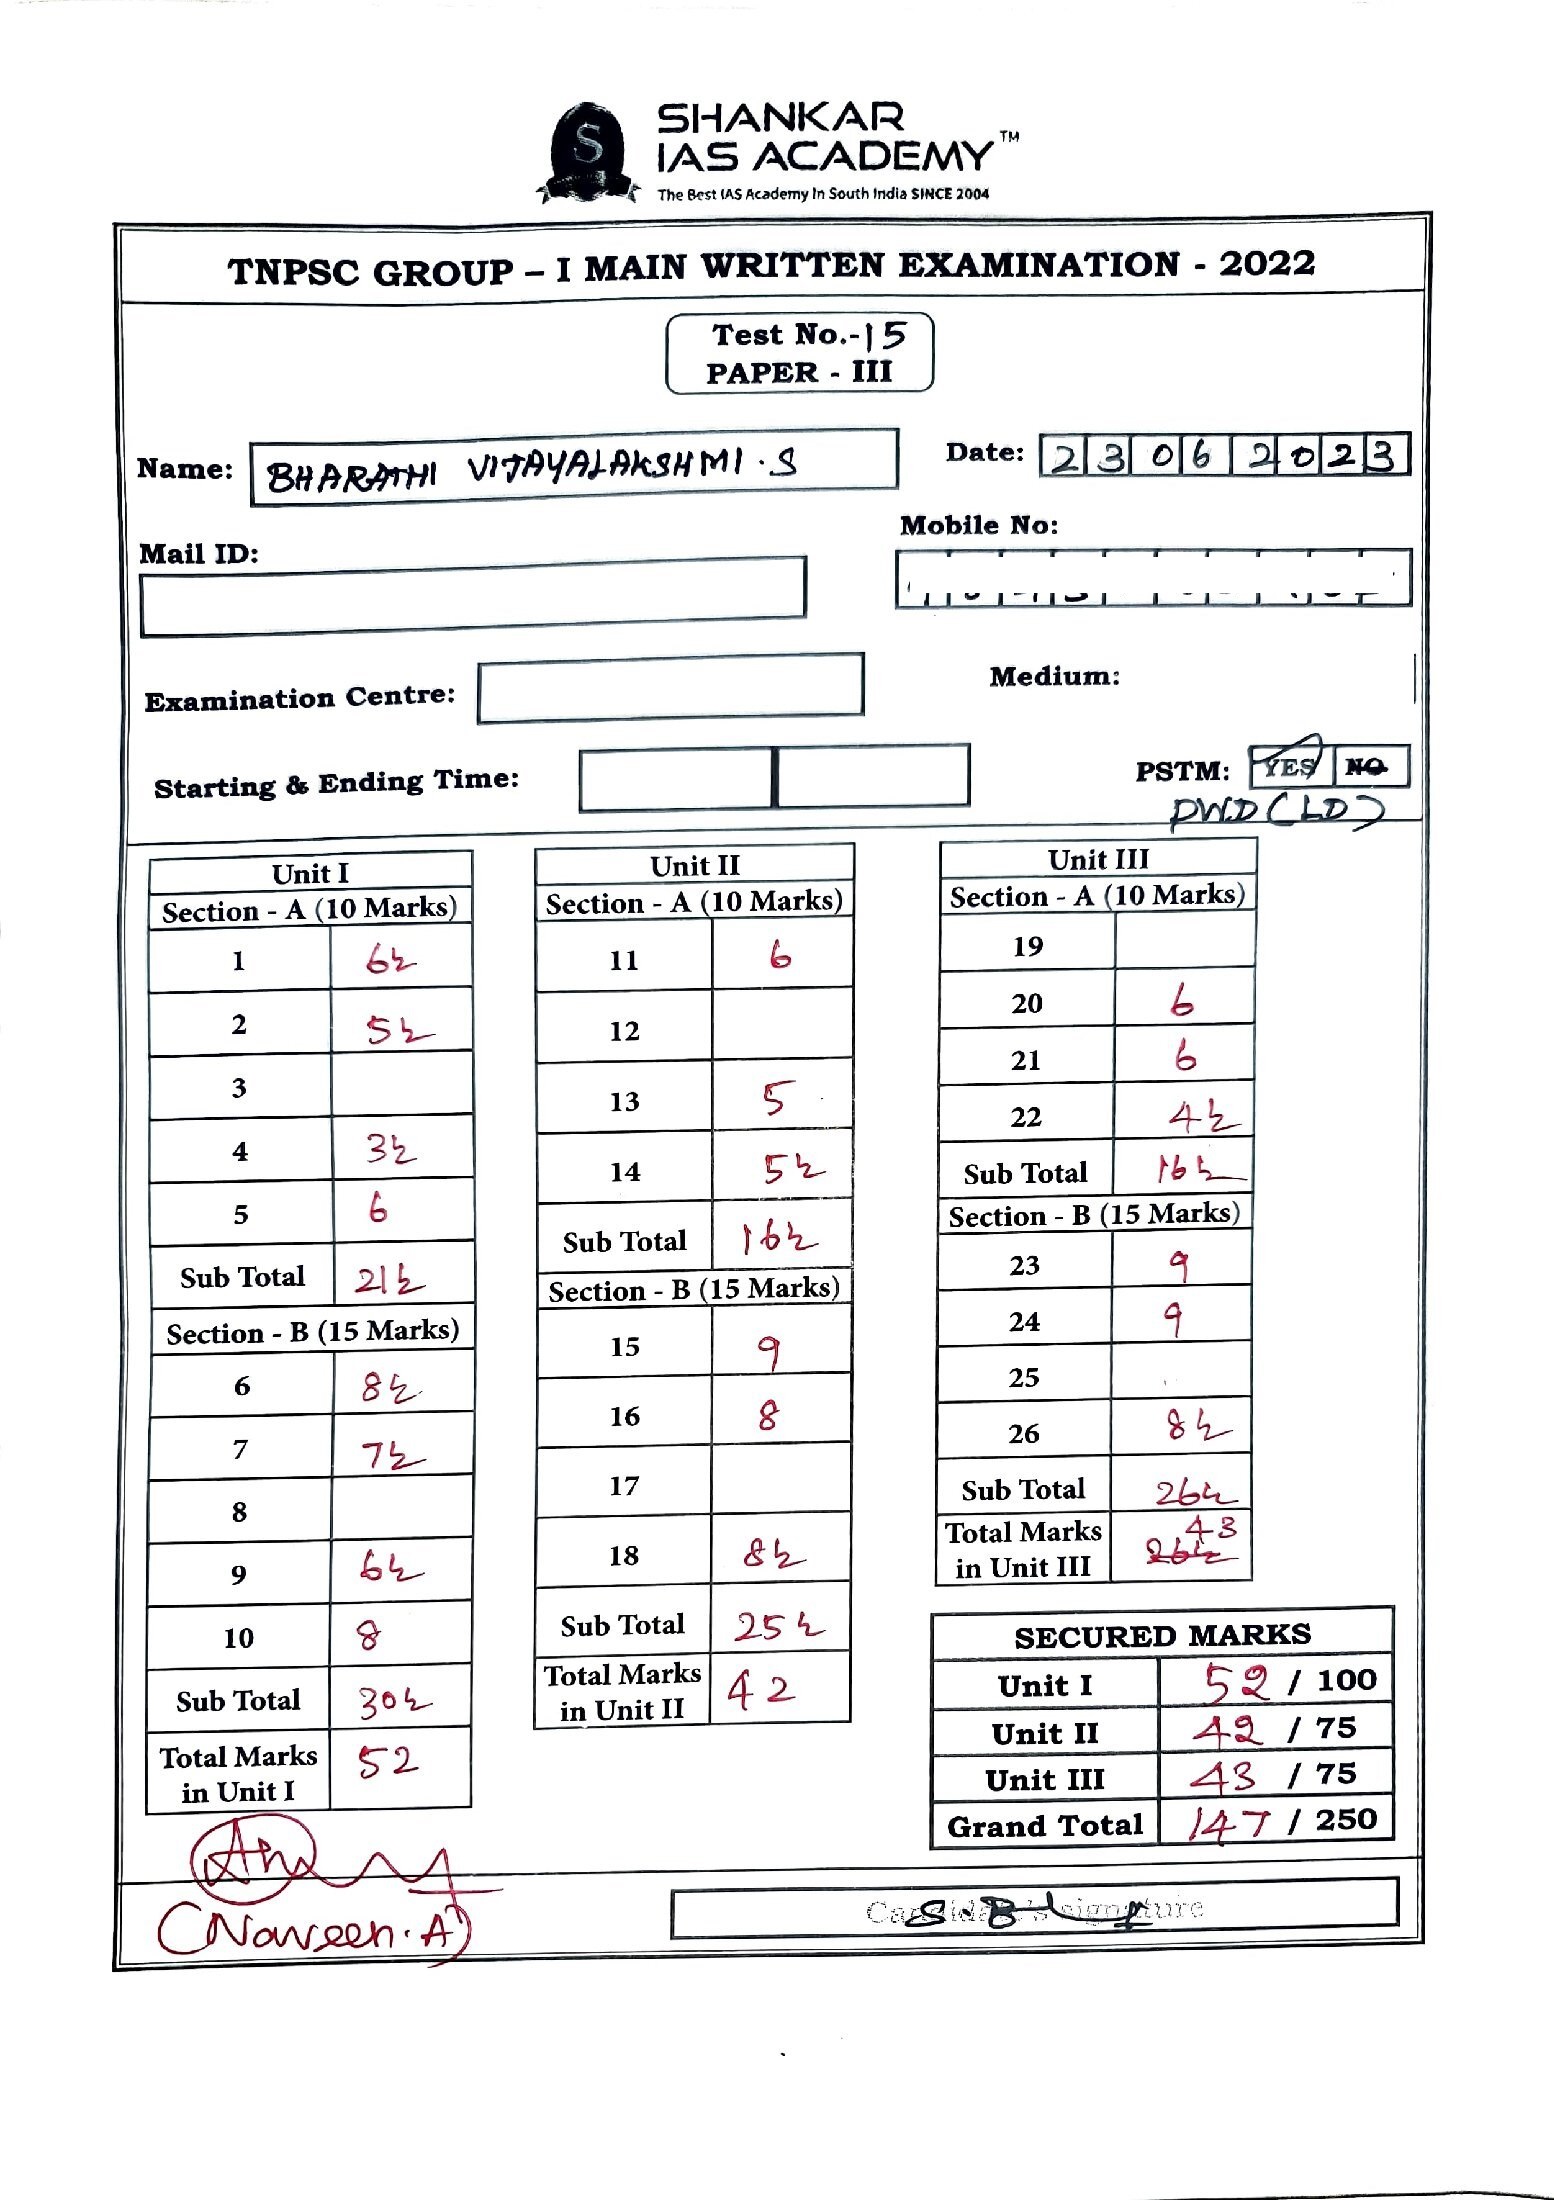 S
SHANKAR
IAS ACADEMY™
The Best IAS Academy In South India SINCE 2004
TNPSC GROUP – I MAIN WRITTEN EXAMINATION - 2022
Test No.-15
PAPER - III
Name: BHARATHI VIJAYALAKSHMI.S
Date: 23062023
Mobile No:
Mail ID:
Examination Centre:
Medium:
Starting & Ending Time:
PSTM: YES NO
PWD (LD)
Unit I
Section - A (10 Marks)
1 6½
2 5½
3
4 3½
5 6
Sub Total 21½
Section - B (15 Marks)
6 8½
7 7½
8
9 6½
10 8
Sub Total 30½
Total Marks
in Unit I 52
Unit II
Section - A (10 Marks)
11 6
12
13 5
14 5½
Sub Total 16½
Section - B (15 Marks)
15 9
16 8
17
18 8½
Sub Total 25½
Total Marks
in Unit II 42
Unit III
Section - A (10 Marks)
19
20 6
21 6
22 4½
Sub Total 16½
Section - B (15 Marks)
23 9
24 9
25
26 8½
Sub Total 26½
Total Marks 43
in Unit III 26½
SECURED MARKS
Unit I 52 / 100
Unit II 42 / 75
Unit III 43 / 75
Grand Total 147 / 250
(Naveen.A)
Candidate's signature